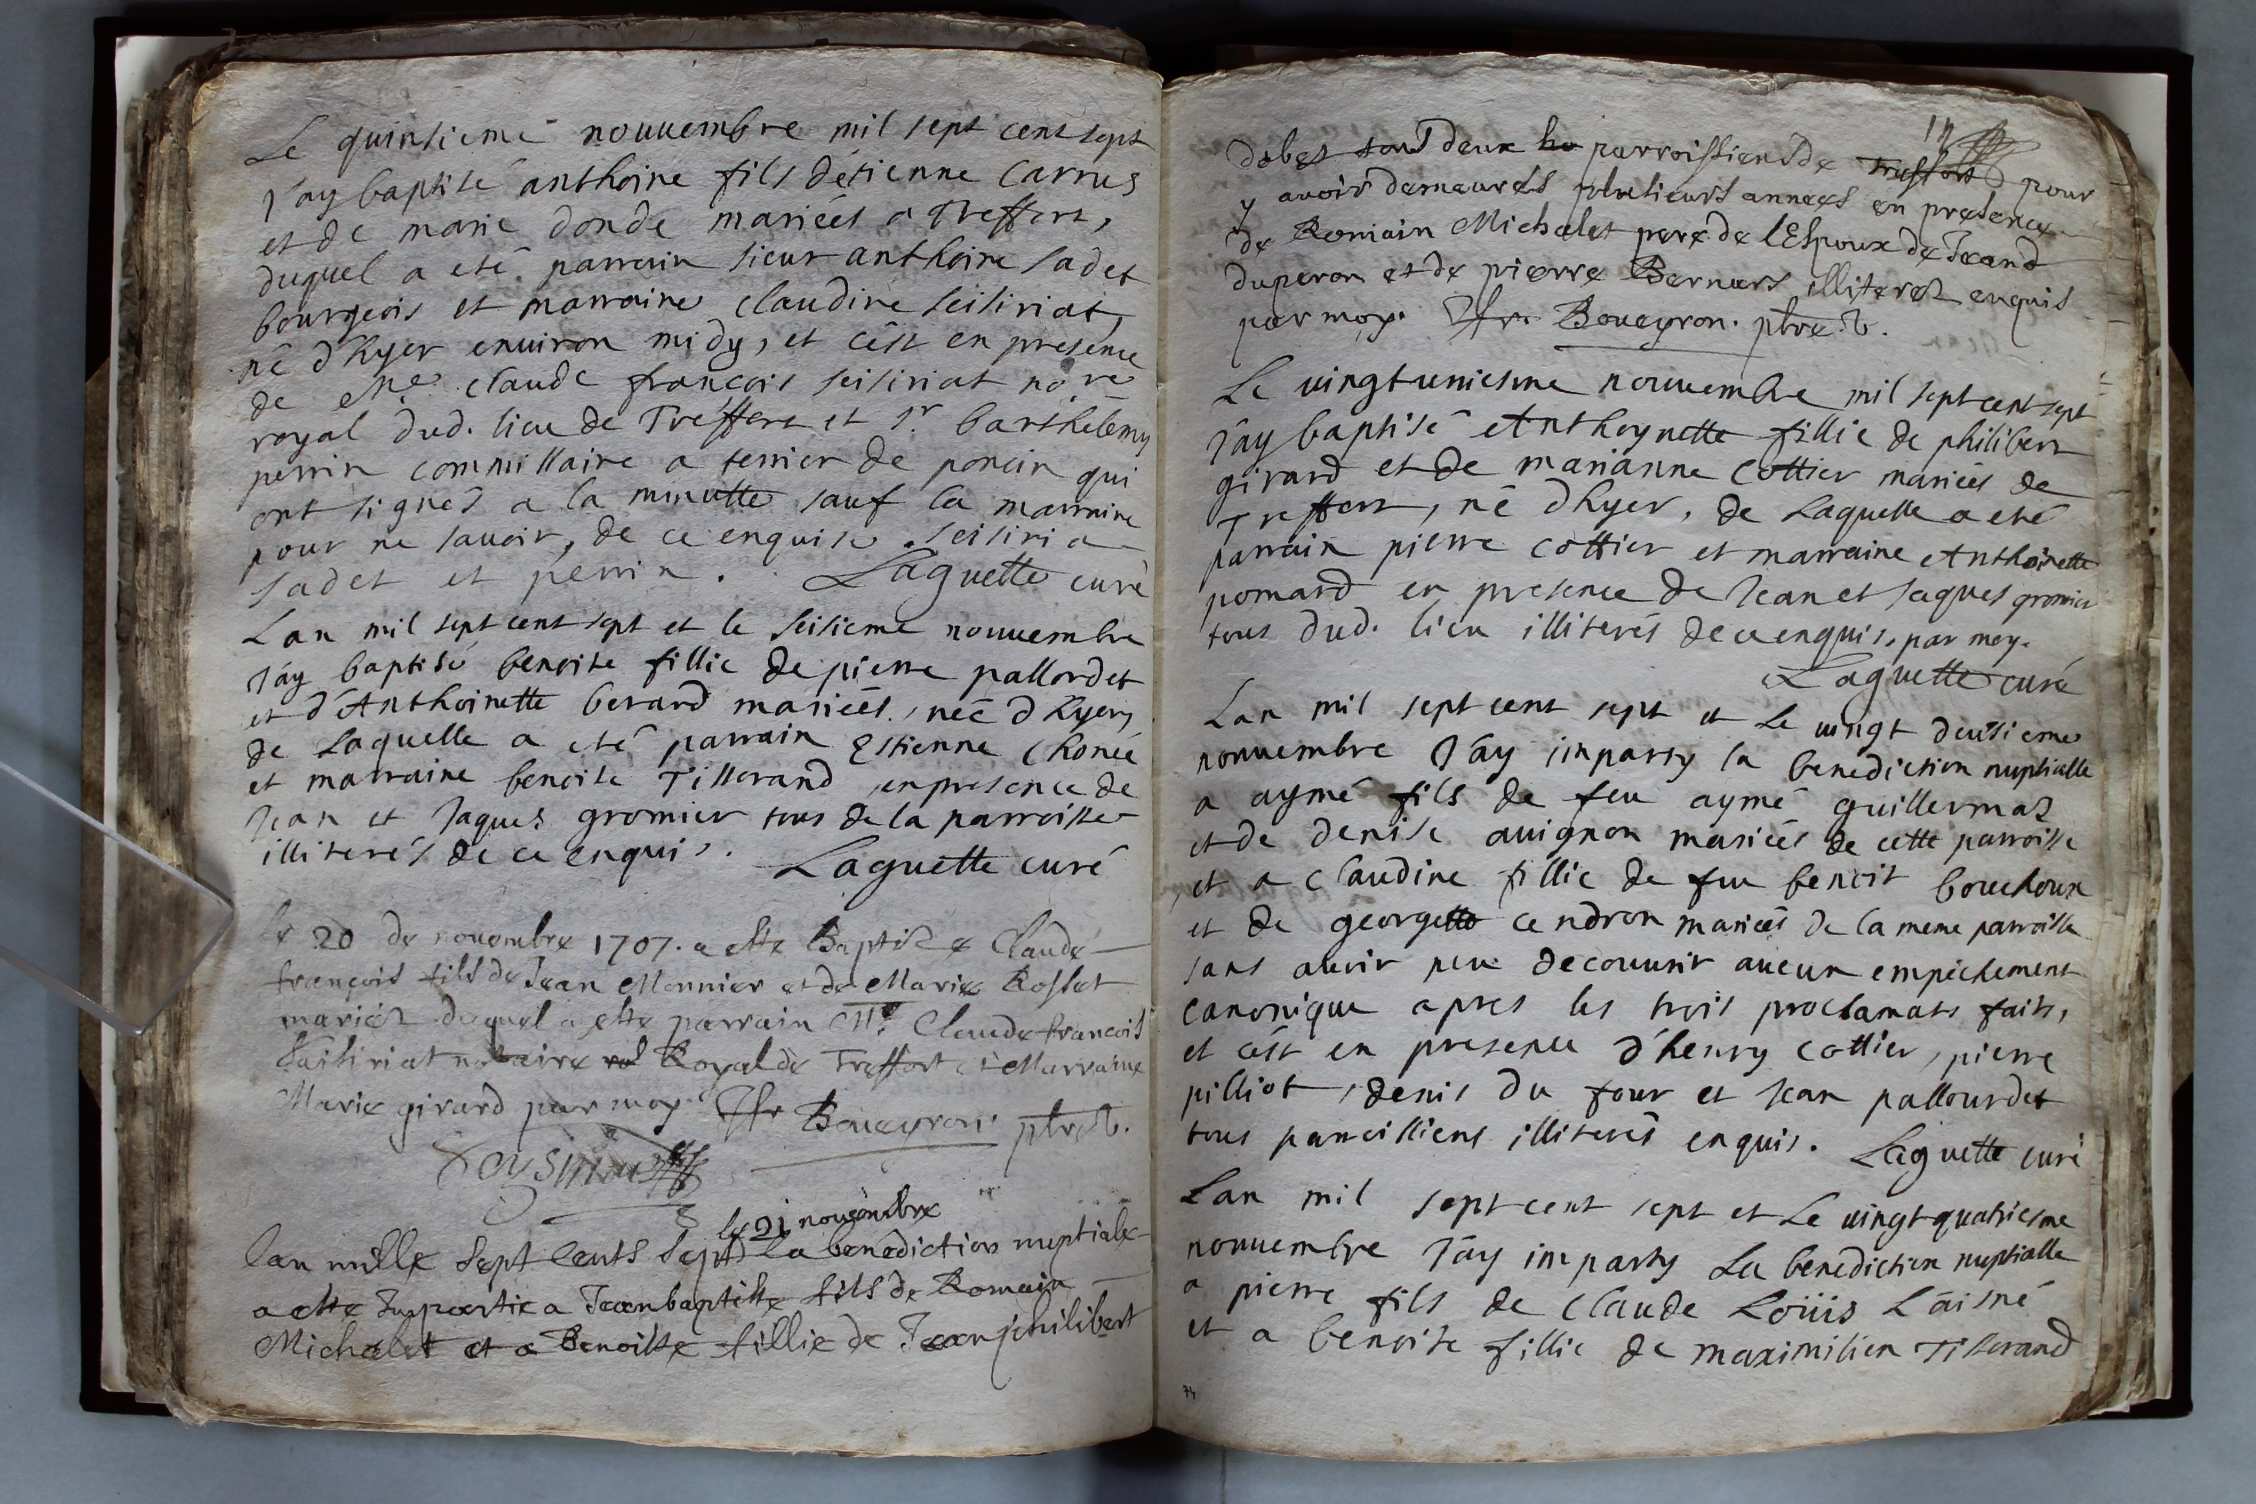 Le quinsieme nouuembre mil sept cent sept
j'ay baptisé anthoine fils détienne Carrus
et de marie donde mariées a Treffort,
duquel a eté parrain sieur anthoine sadet
bourgeois et marraine claudine seisiriat,
né d'hyer enuiron midy, et cêst en presence
de Me claude francois seisiriat nore
royal dud. lieu de Treffort et sr barthelemy
perrin commissaire a terrier de poncin qui
ont signés a la minutte sauf la marraine
pour ne sauoir, de ce enquise. seisiria
sadet et perrin. Laguette curé
Lan mil sept cent sept et le seisieme nouuembre
j'ay baptisé benoite fillie de pierre pallordet
et d'Anthoinette berard mariées, néé d'hyer,
de Laquelle a eté parrain Estienne Chonée
et marraine benoite Tisserand, en presence de
jean et jaques gromier tous de la parroisse
illiterés de ce enquis. Laguette curé
le 20 de nouembre 1707. a este Baptize Claude
françois fils de Jean Monnier et de Marie Roslet
mariez duquel a este parrain Me Claude francois
Saisiriat notaire Royal de Treffort et Marraine
Marie girard par moy. Boueyron. ptre. V.
le 21 nouembre
lan mille sept cents sept la benediction nuptiale
a este Impartie a Jeanbaptiste fils de Romain
Michalet et a Benoiste fillie de Jeanphilibert
dobet tous deux parroissiens de Treffort pour
y auoir demeurés plusieurs annees en presence
de Romain Michalet pere de l'Espoux de Jeand
duperon et de pierre Bernard illiterez enquis
par moy. Boueyron. ptre. V.
Le uingtuniesme nouuembre mil sept cent sept
j'ay baptisé Anthoynette fillie de philibert
girard et de marianne Cottier mariées de
Treffort, né d'hyer, de Laquelle a eté
parrain pierre cottier et marraine Anthoinette
pomard en presence de jean et jaques gromier
tous dud. lieu illiterés de ce enquis, par moy.
Laguette curé
Lan mil sept cent sept et Le uingt deusieme
nouuembre j'ay imparty la benediction nuptialle
a aymé fils de feu aymé guillermaz
et de denise auignon mariées de cette parroisse
et a claudine fillie de feu benoit bouchoux
et de georgette cendron mariées de la meme parroisse
sans auoir peu decouurir aucun empechement
canonique apres les trois proclamats faits,
et cêst en presence d'henry cottier, pierre
pilliot, denis du four et jean pallourdet
tous parroissiens illiterés enquis. Laguette curé
Lan mil sept cent sept et Le uingt quatriesme
nouuembre j'ay imparty La benediction nuptialle
a pierre fils de claude Loüis L'aisné
et a benoite fillie de maximilien Tisserand
74